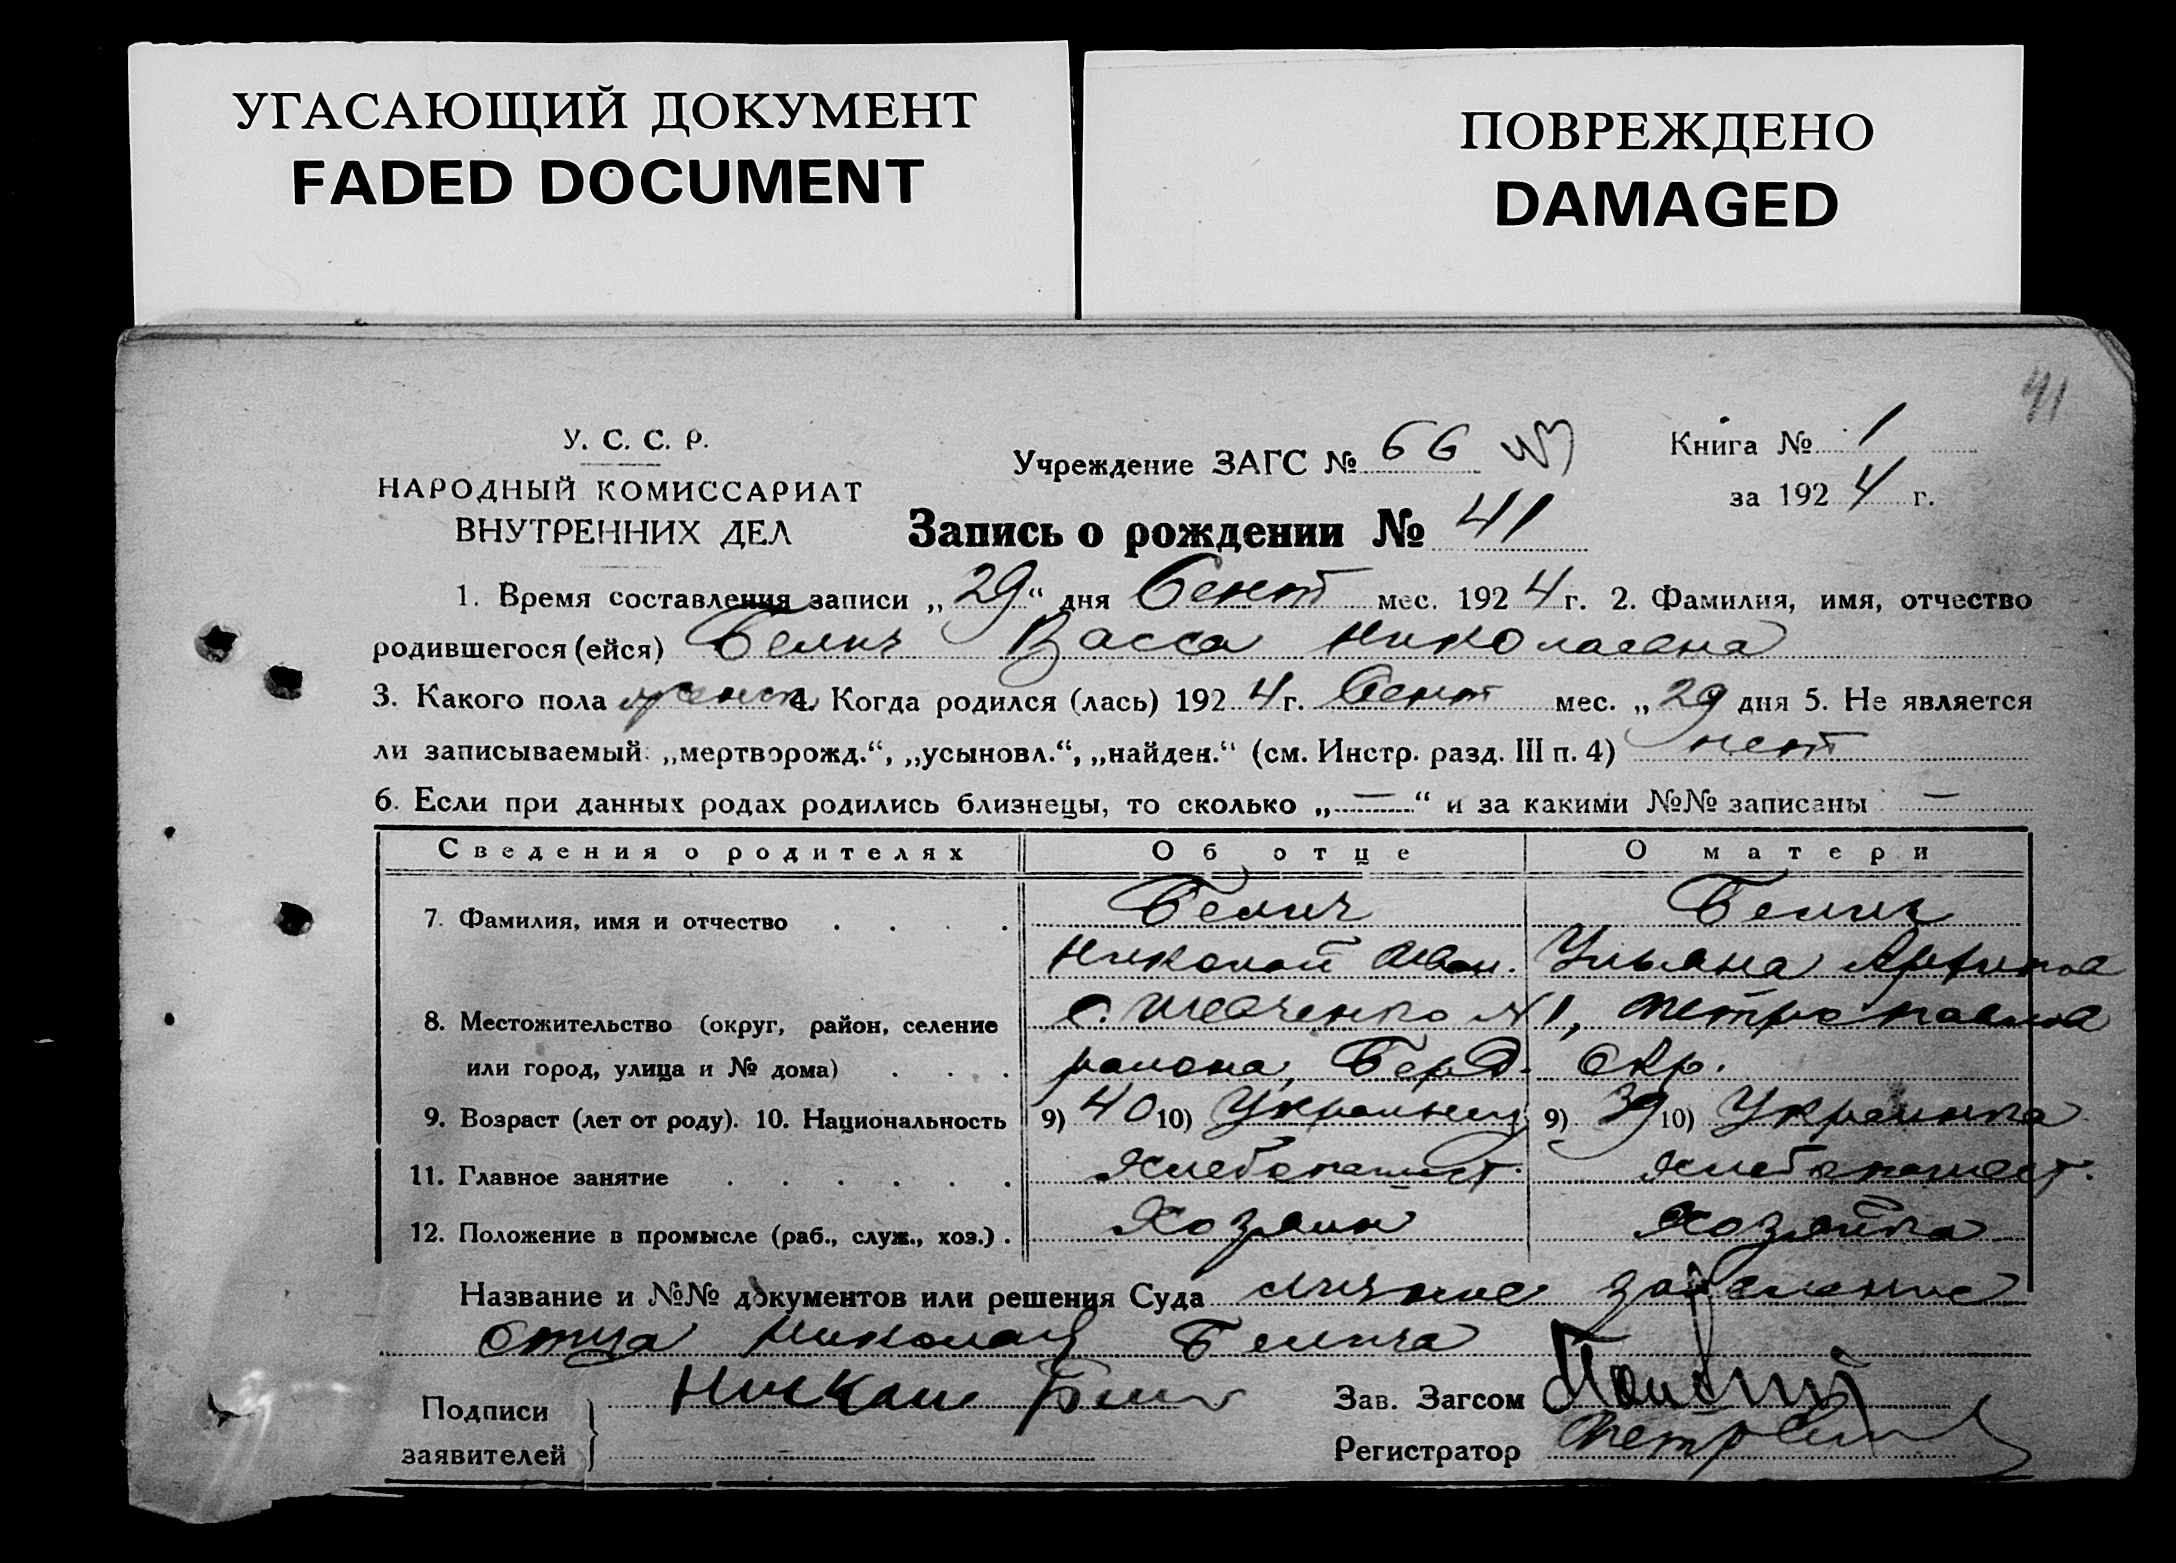 УГАСАЮЩИЙ ДОКУМЕНТ
FADED DOCUMENT
ПОВРЕЖДЕНО
DAMAGED
41
У. С. С. Р.
НАРОДНЫЙ КОМИССАРИАТ
ВНУТРЕННИХ ДЕЛ
Учреждение ЗАГС № 66
Книга № 1
за 1924 г.
Запись о рождении № 41
1. Время составления записи „29“ дня Сент мес. 1924 г. 2. Фамилия, имя, отчество
родившегося (ейся) Белич Васса Николаевна
3. Какого пола женск 4. Когда родился (лась) 1924 г. Сент мес. „29 дня 5. Не является
ли записываемый: „мертворожд.“, „усыновл.“, „найден.“ (см. Инстр. разд. III п. 4) нет
6. Если при данных родах родились близнецы, то сколько „—“ и за какими №№ записаны —
Сведения о родителях Об отце О матери
7. Фамилия, имя и отчество . . . . Белич Белич
Николай Иван. Ульяна
8. Местожительство (округ, район, селение с. Шевченко №1, Петропавлов
или город, улица и № дома) . . . района, Берд. Окр.
9. Возраст (лет от роду). 10. Национальность 9) 40 10) Украинец 9) 39 10) Украинка
11. Главное занятие . . . . . . Хлебопашест. Хлебопашест.
12. Положение в промысле (раб., служ., хоз.) . Хозяин Хозяйка
Название и №№ документов или решения Суда личное заявление
отца Николая Белича
Подписи
заявителей
Зав. Загсом
Регистратор